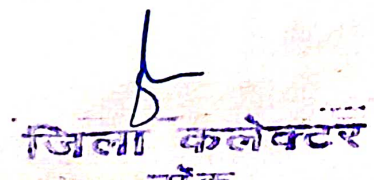 जिला कलेक्टर